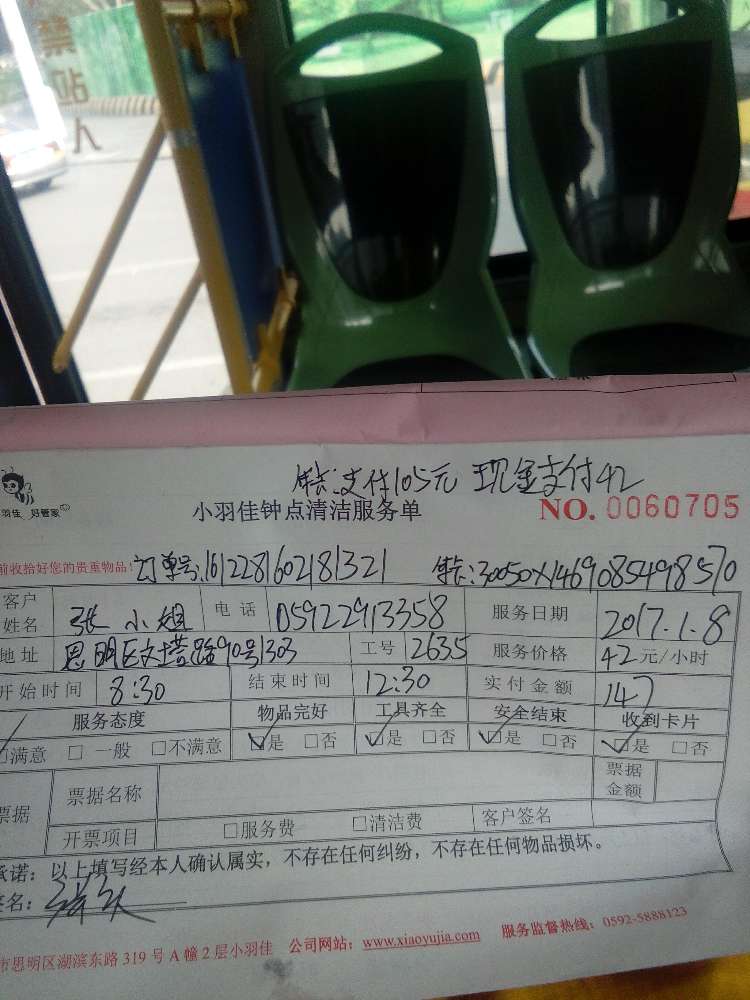 禁站人
售卡:支付105元 现金支付42
小羽佳 好管家
小羽佳钟点清洁服务单 NO. 0060705
前收拾好您的贵重物品! 订单号:1612281602181321 售卡:30050X1469085498570
客户姓名 张小姐 电话 05922913358 服务日期 2017.1.8
地址 思明区文塔路90号1303 工号 2635 服务价格 42元/小时
开始时间 8:30 结束时间 12:30 实付金额 147
服务态度 物品完好 工具齐全 安全结束 收到卡片
☑满意 □一般 □不满意 ☑是 □否 ☑是 □否 ☑是 □否 ☑是 □否
票据 票据名称 票据金额
开票项目 □服务费 □清洁费 客户签名
承诺:以上填写经本人确认属实,不存在任何纠纷,不存在任何物品损坏。
签名:
市思明区湖滨东路319号A幢2层小羽佳 公司网站:www.xiaoyujia.com 服务监督热线:0592-5888123